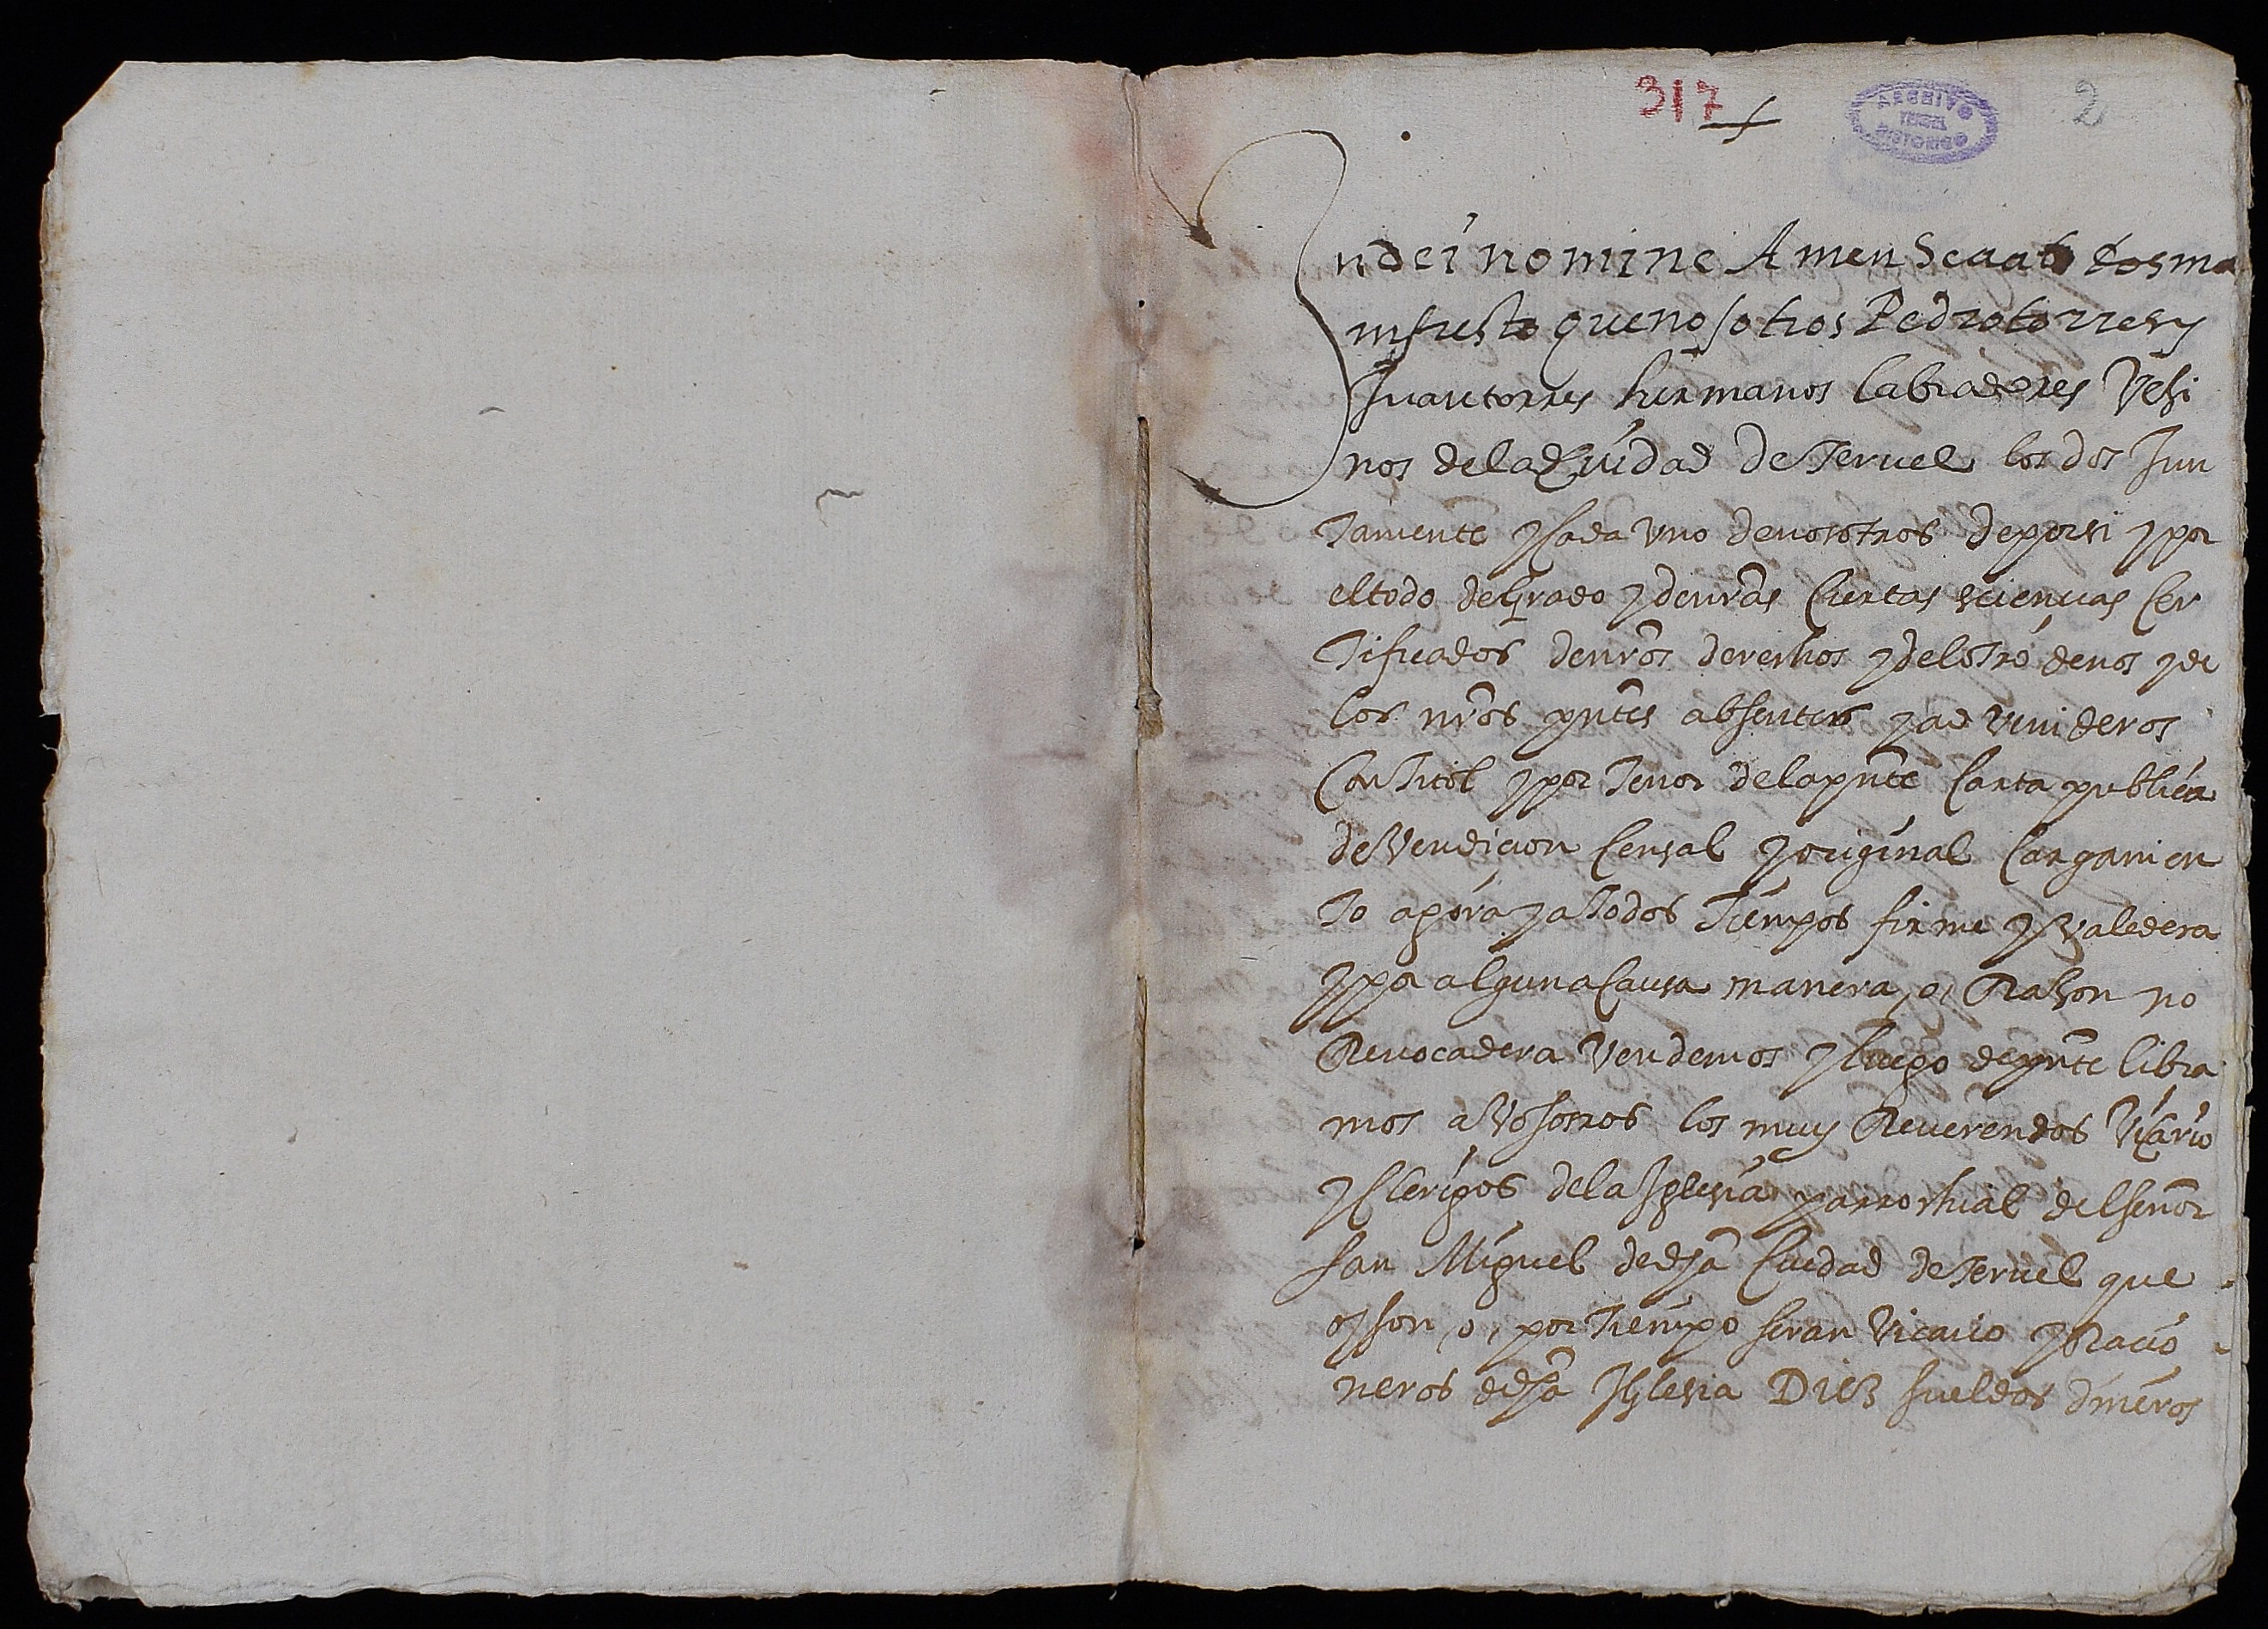 317
ARCHIVO
TERUEL
HISTORICO
2
In dei nomine Amen Sea a todos ma
nifiesto que nosotros Pedro torres y
Juan torres hermanos labradores Vesi
nos de la Ciudad de Teruel los dos Jun
tamente y Cada Uno de nosotros de por si y por
el todo de Grado y de nras Ciertas sciencias Cer
tificados de nros derechos y del otro de nos y de
los nros pntes absentes y ad venideros
Con titol y por tenor de la pnte Carta publica
de Vendicion Censal y original Cargamien
to agora y a todos tiempos firme y Valedera
y por alguna Causa manera, o, Rahon no
Reuocadera Vendemos y luego de pnte libra
mos a Vosotros los muy Reuerendos Vicario
y Clerigos de la Iglesia parrochial del señor
San Miguel de dha Ciudad de Teruel que
oy son, o, por tiempo seran Vicario y Racio
neros de dha Iglesia Diez sueldos dineros